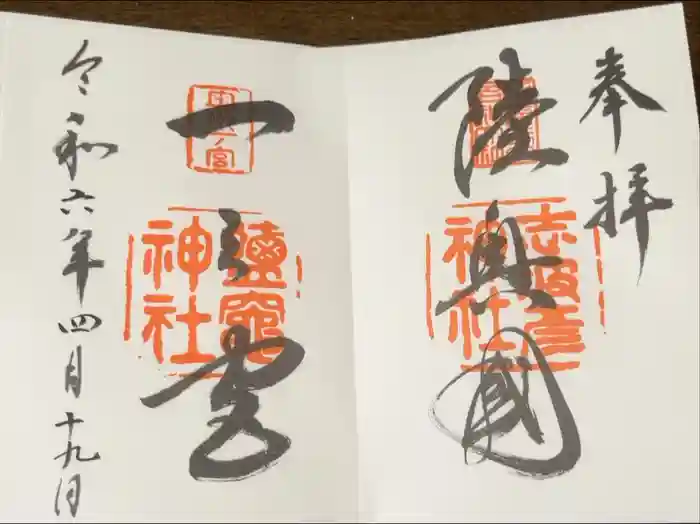 奉拝
陸奥國
志波彦神社
一之宮
鹽竈神社
令和六年四月十九日